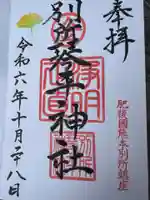 奉拝
肥後國熊本別所鎮座
別所琴平神社
令和六年十月二十八日